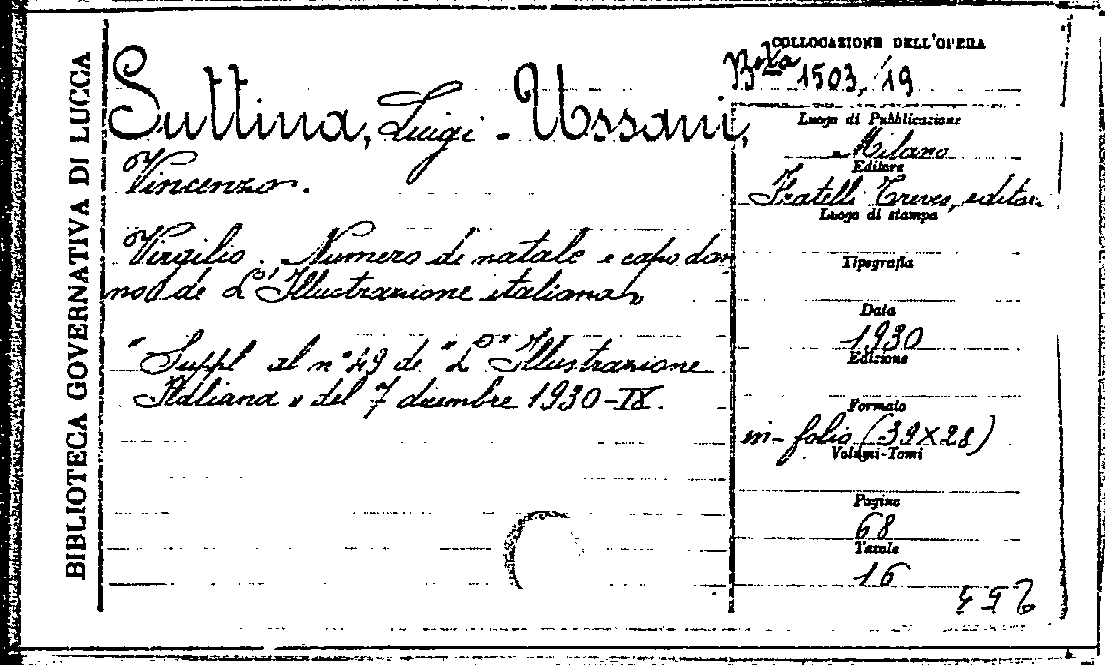 BIBLIOTECA GOVERNATIVA DI LUCCA
Suttina, Luigi - Ussani,
Vincenzo.
Virgilio. Numero di natale e capo dan
no de L'Illustrazione italiana,
"Suppl al n° 49 de "L'Illustrazione
Italiana" del 7 dicembre 1930-IX.
COLLOCAZIONE DELL'OPERA
Bta 1503,/19
Luogo di Pubblicazione
Milano
Editore
Fratelli Treves, editori
Luogo di stampa
Tipografia
Data
1930
Edizione
Formato
in-folio (39x28)
Volumi-Tomi
Pagine
68
Tavole
16